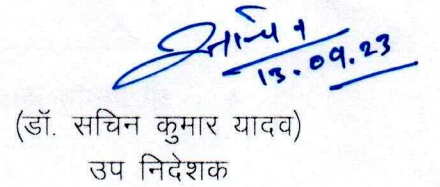 13.09.23
(डॉ. सचिन कुमार यादव)
उप निदेशक